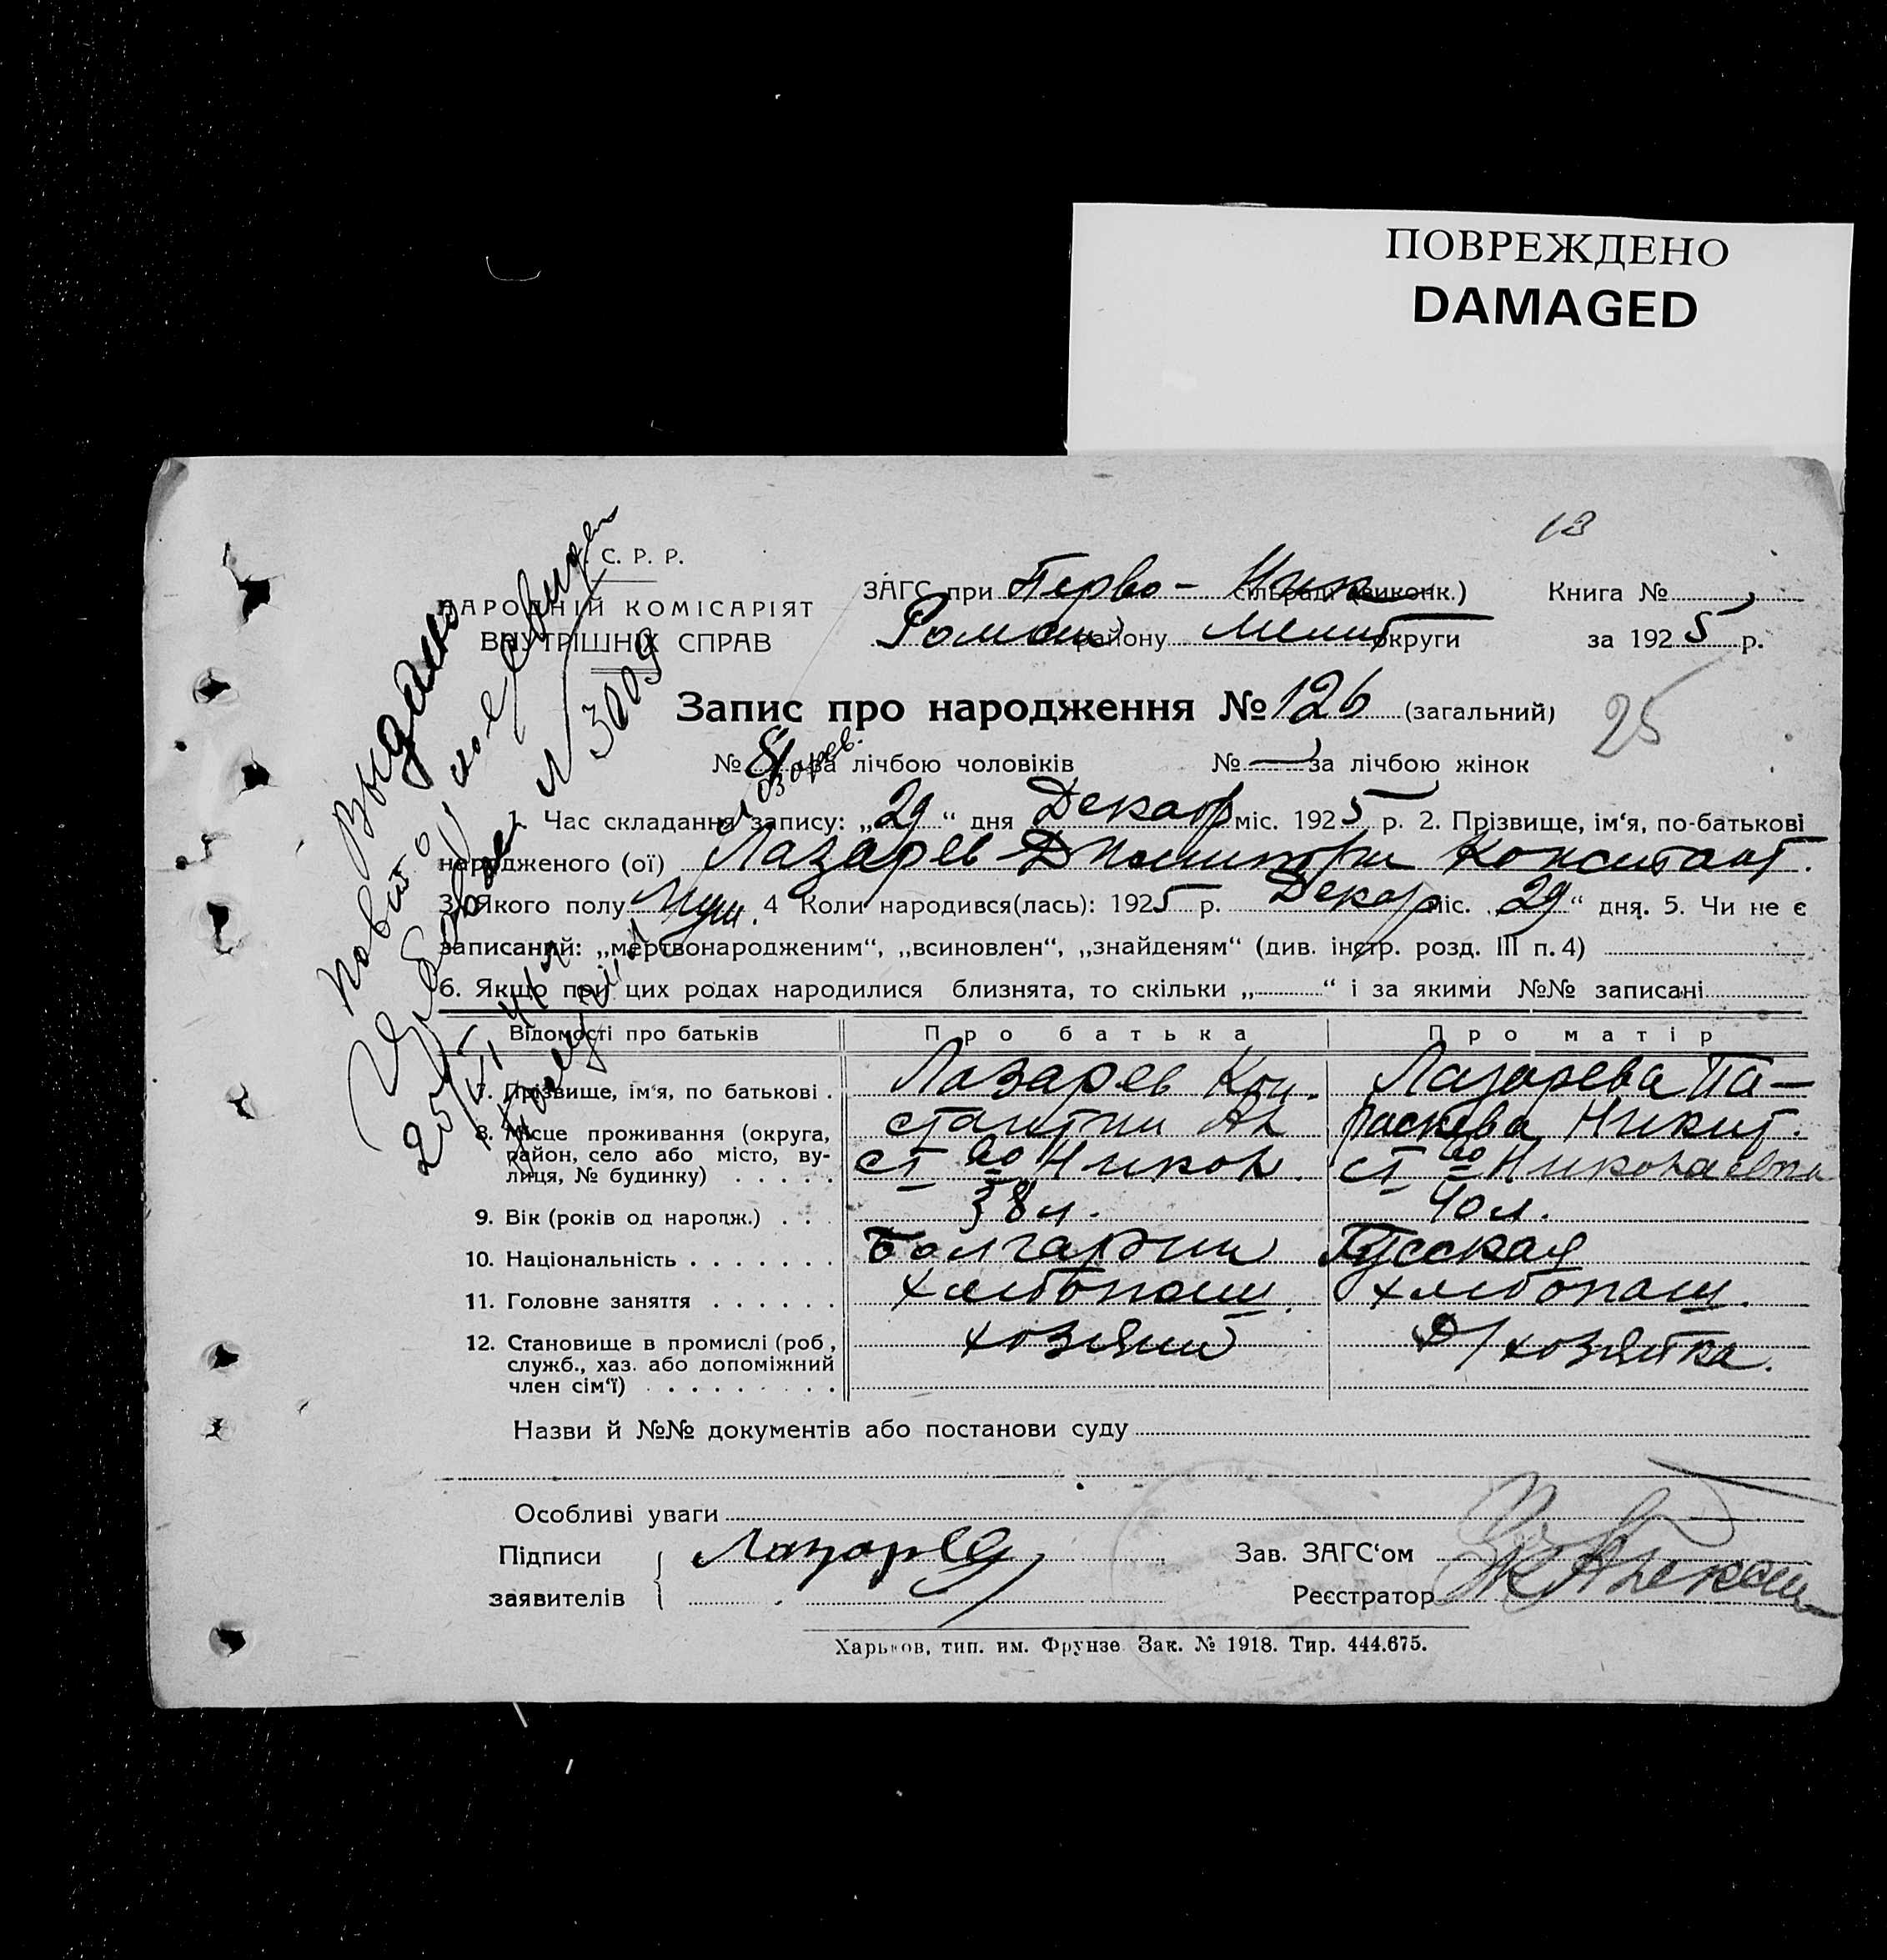 ПОВРЕЖДЕНО
DAMAGED
13
С. Р. Р.
НАРОДНІЙ КОМІСАРІЯТ
ВНУТРІШНІХ СПРАВ
ЗАГС при Перво- Ник сільраді (виконк.) Книга №
Роман району Мелит округи за 1925 р.
Запис про народження № 126 (загальний)
25
№ за лічбою чоловіків № — за лічбою жінок
1. Час складання запису: „29“ дня Декабр міс. 1925 р. 2. Прізвище, ім‘я, по-батькові
народженого (ої) Лазарев Димитри Констант.
3. Якого полу Муж. 4 Коли народився(лась): 1925 р. Декабр міс. „29“ дня. 5. Чи не є
записаний: „мертвонародженим“, „всиновлен“, „знайденям“ (див. інстр. розд. III п. 4)
6. Якщо при цих родах народилися близнята, то скільки „ “ і за якими №№ записані
Відомості про батьків Про батька Про матір
7. Прізвище, ім‘я, по батькові . Лазарев Кон- Лазарева Па-
стантин Ал раскева Никит.
8. Місце проживання (округа,
район, село або місто, ву-
лиця, № будинку) . . . . .
9. Вік (років од нарощж.) . . . 38 л. 40 л.
10. Національність . . . . . . . Болгарин Русская
11. Головне заняття . . . . . . хлебопаш. хлебопаш.
12. Становище в промислі (роб, хозяин Д/хозяйка.
служб., хаз. або допоміжний
член сім‘ї) . . . . . . . . .
Назви й №№ документів або постанови суду
Особливі уваги
Підписи
заявителів
Лазарев
Зав. ЗАГС‘ом
Реєстратор
Харьков, тип. им. Фрунзе Зак. № 1918. Тир. 444.675.
Выдано
повт
№ 3009